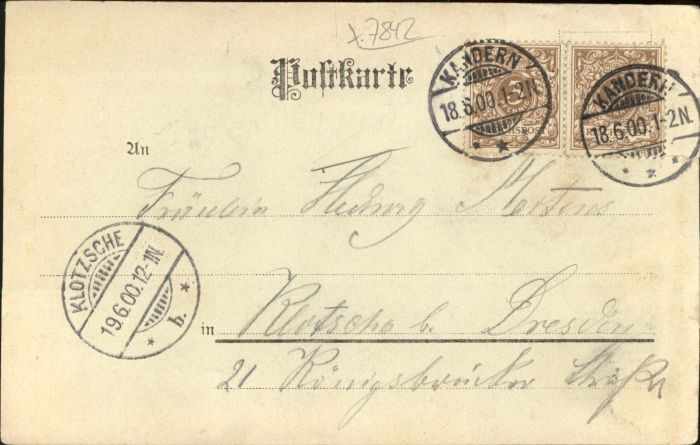 x.7842
Postkarte
KANDERN
18.6.00.1-2N.
KANDERN
18.6.00.1-2N.
REICHSPOST
An
Fräulein Hedwig Martens
KLOTZSCHE
19.6.00.12-1N.
b.
in
Klotsche b. Dresden
21 Königsbrücker Straße